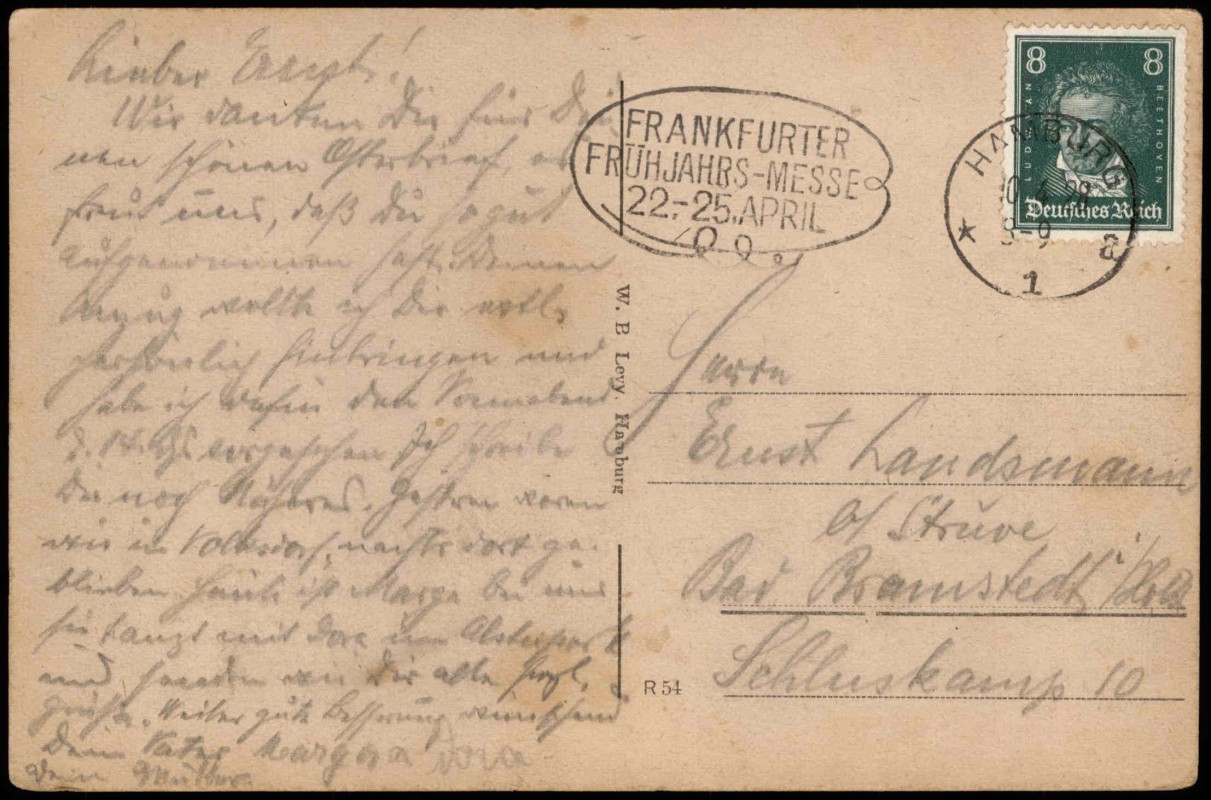 Lieber Ernst!
Wir danken Dir für Dei-
nen schönen Osterbrief, es
freut uns, daß Du so gut
aufgenommen hast. Deinen
Anzug wollte ich Dir evtl.
persönlich hinbringen und
habe ich dafür den Sonnabend
d. 14. vorgesehen Ich schreibe
Dir noch Näheres. Gestern waren
wir in Volksdorf, nachts dort ge-
blieben. Heute ist Marga bei uns
sie tanzt mit Dora im Alsterpark
und senden wir Dir alle herzl.
Grüße. Weiter gute Besserung wünschend
Dein Vater Marga Dora
Deine Mutter
FRANKFURTER
FRÜHJAHRS-MESSE
22.-25. APRIL
8 8
LUDWIG VAN BEETHOVEN
Deutsches Reich
HAMBURG
8-9
1
W. B. Levy. Hamburg
Herrn
Ernst Landsmann
b/ Struve
Bad Bramstedt i/Holst
Schluskamp 10
R 54